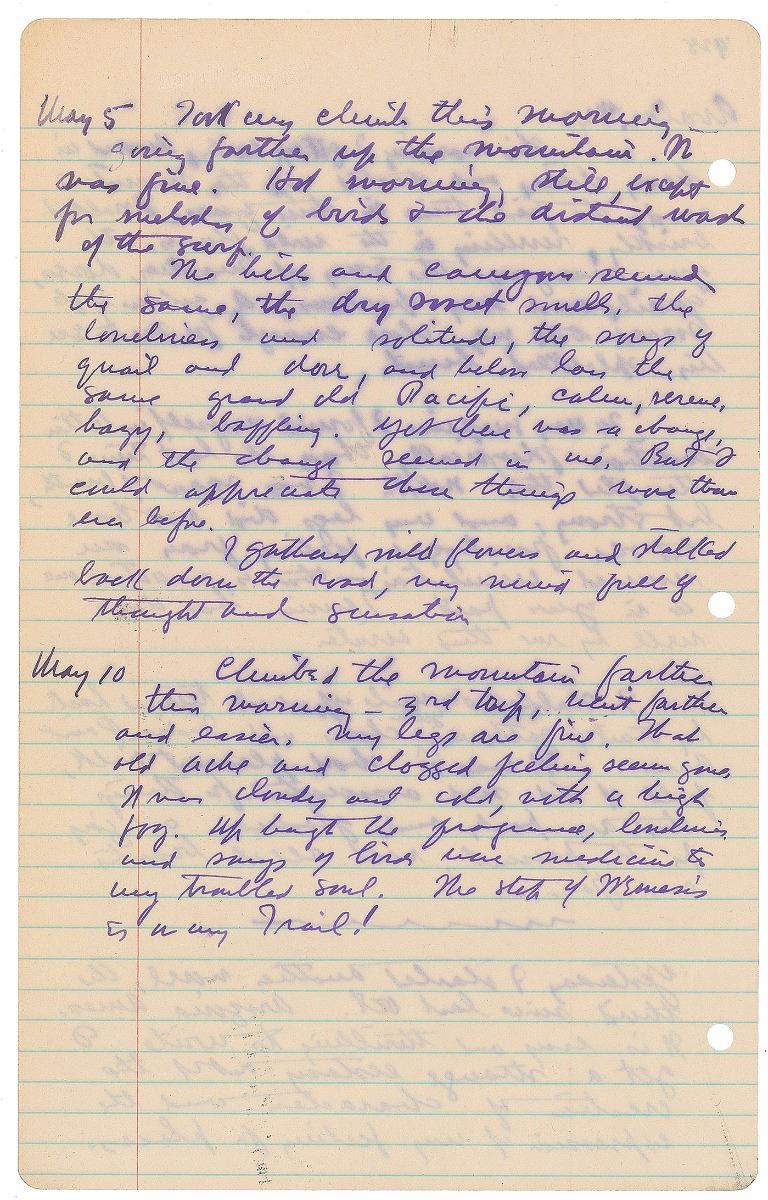 May 5 Took my climb this morning —
going farther up the mountain. It
was fine. Hot morning, still, except
for melodies of birds & the distant wash
of the surf.
The hills and canyons seemed
the same, the dry sweet smells, the
loneliness and solitude, the songs of
quail and dove, and below lay the
same grand old Pacific, calm, serene,
hazy, baffling. Yet there was a change,
and the change seemed in me. But I
could appreciate these things more than
ever before.
I gathered wild flowers and stalked
back down the road, my mind full of
thought and sensation
May 10 Climbed the mountain farther
this morning — 3rd trip, went farther
and easier. My legs are fine. That
old ache and clogged feeling seem gone.
It was cloudy and cold, with a high
fog. Up the fragrance, loneliness
and songs of birds were medicine to
my troubled soul. The step of Nemesis
is on my Trail!